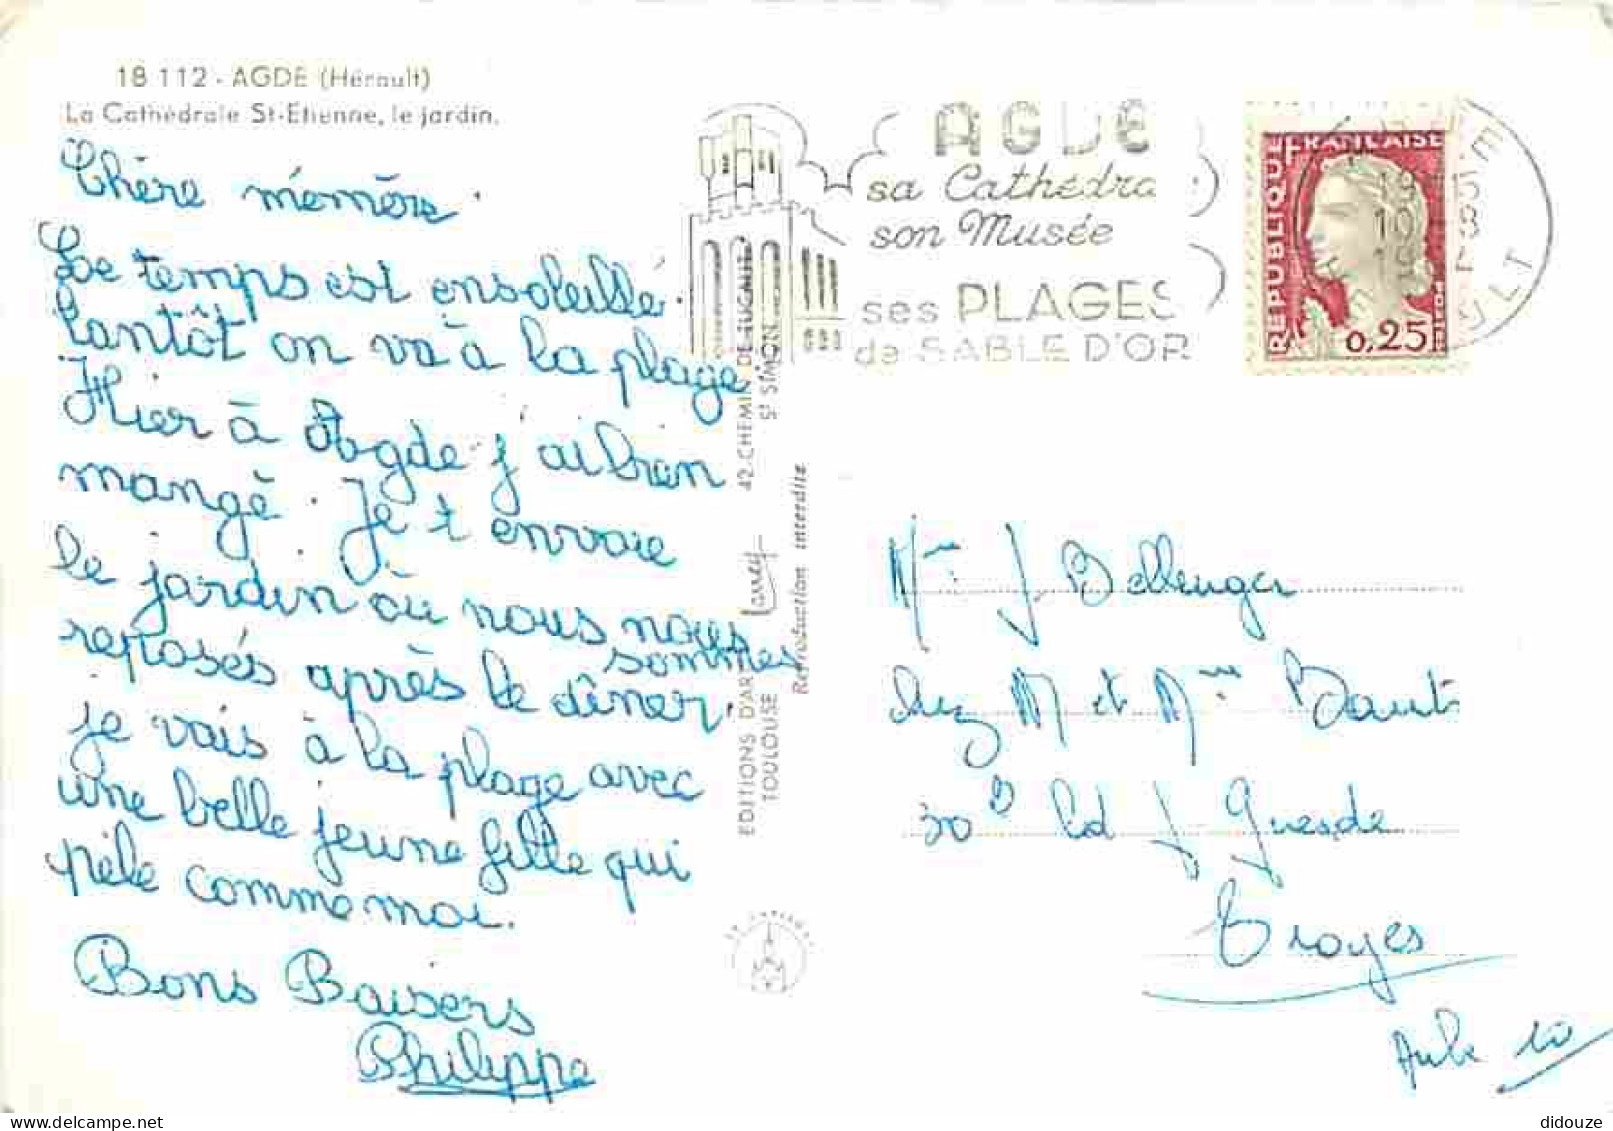 18 112 - AGDE (Hérault)
La Cathédrale St-Etienne, le jardin.
Chère mémère.
Le temps est ensoleillé.
tantôt on va à la plage
Hier à Agde j'ai bien
mangé. Je t envoie
le jardin où nous nous
sommes
reposés après le dîner.
je vais à la plage avec
une belle jeune fille qui
pèle comme moi.
Bons Baisers
Philippe
EDITIONS D'ART Larrey 42-CHEMIN DE TUCAUT
TOULOUSE St SIMON
Reproduction interdite
AGDE
sa Cathédra
son Musée
ses PLAGES
de SABLE D'OR
REPUBLIQUE FRANÇAISE
0,25
DECARIS
19
10
HERAULT
Mme J. Bellenger
chez M et Mme Baut
30B bd J Guesde
Troyes
Aube 10
didouze